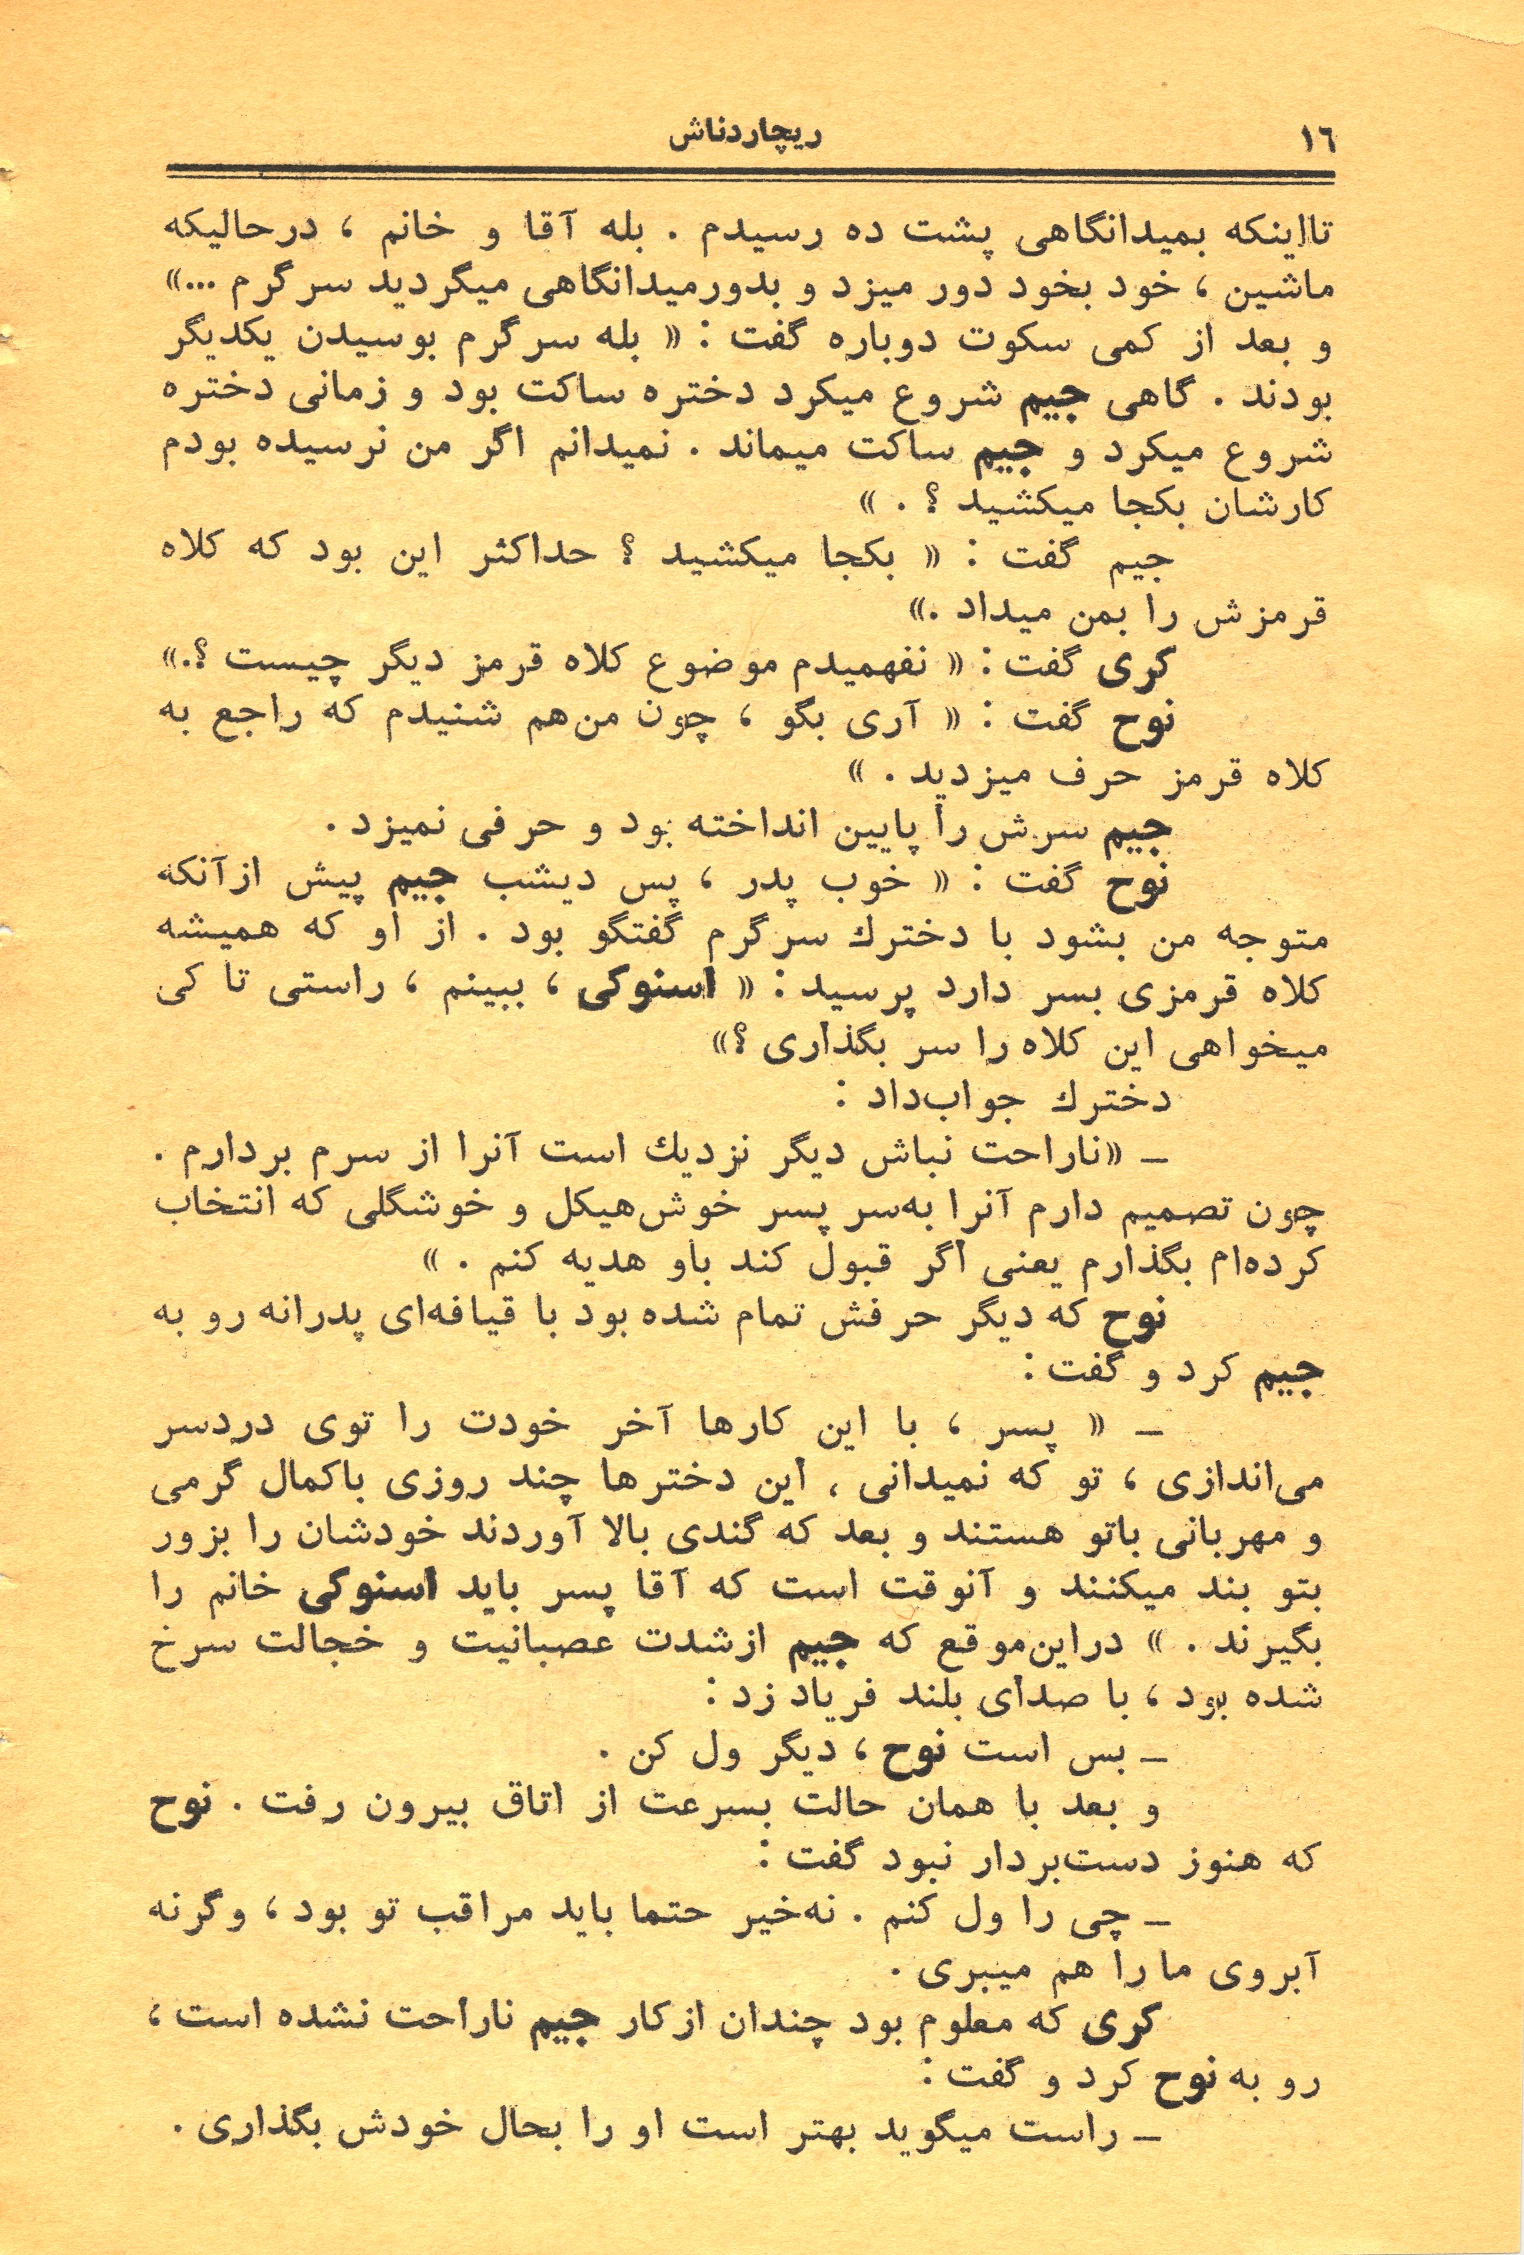 ١٦
ریچاردناش
تااینکه بمیدانگاهی پشت ده رسیدم . بله آقا و خانم ، درحالیکه
ماشین ، خود بخود دور میزد و بدورمیدانگاهی میگردید سرگرم ...»
و بعد از کمی سکوت دوباره گفت : « بله سرگرم بوسیدن یکدیگر
بودند . گاهی جیم شروع میکرد دختره ساکت بود و زمانی دختره
شروع میکرد و جیم ساکت میماند . نمیدانم اگر من نرسیده بودم
کارشان بکجا میکشید ؟ . »
جیم گفت : « بکجا میکشید ؟ حداکثر این بود که کلاه
قرمزش را بمن میداد .»
کری گفت : « نفهمیدم موضوع کلاه قرمز دیگر چیست ؟.»
نوح گفت : « آری بگو ، چون من‌هم شنیدم که راجع به
کلاه قرمز حرف میزدید . »
جیم سرش را پایین انداخته بود و حرفی نمیزد .
نوح گفت : « خوب پدر ، پس دیشب جیم پیش ازآنکه
متوجه من بشود با دخترك سرگرم گفتگو بود . از او که همیشه
کلاه قرمزی بسر دارد پرسید : « اسنوکی ، ببینم ، راستی تا کی
میخواهی این کلاه را سر بگذاری ؟»
دخترك جواب‌داد :
ـ «ناراحت نباش دیگر نزدیك است آنرا از سرم بردارم .
چون تصمیم دارم آنرا به‌سر پسر خوش‌هیکل و خوشگلی که انتخاب
کرده‌ام بگذارم یعنی اگر قبول کند باو هدیه کنم . »
نوح که دیگر حرفش تمام شده بود با قیافه‌ای پدرانه رو به
جیم کرد و گفت :
ـ « پسر ، با این کارها آخر خودت را توی دردسر
می‌اندازی ، تو که نمیدانی ، این دخترها چند روزی باکمال گرمی
و مهربانی باتو هستند و بعد که گندی بالا آوردند خودشان را بزور
بتو بند میکنند و آنوقت است که آقا پسر باید اسنوکی خانم را
بگیرند . » دراین‌موقع که جیم ازشدت عصبانیت و خجالت سرخ
شده بود ، با صدای بلند فریاد زد :
ـ بس است نوح ، دیگر ول کن .
و بعد با همان حالت بسرعت از اتاق بیرون رفت . نوح
که هنوز دست‌بردار نبود گفت :
ـ چی را ول کنم . نه‌خیر حتما باید مراقب تو بود ، وگرنه
آبروی مارا هم میبری .
کری که معلوم بود چندان ازکار جیم ناراحت نشده است ،
رو به نوح کرد و گفت :
ـ راست میگوید بهتر است او را بحال خودش بگذاری .